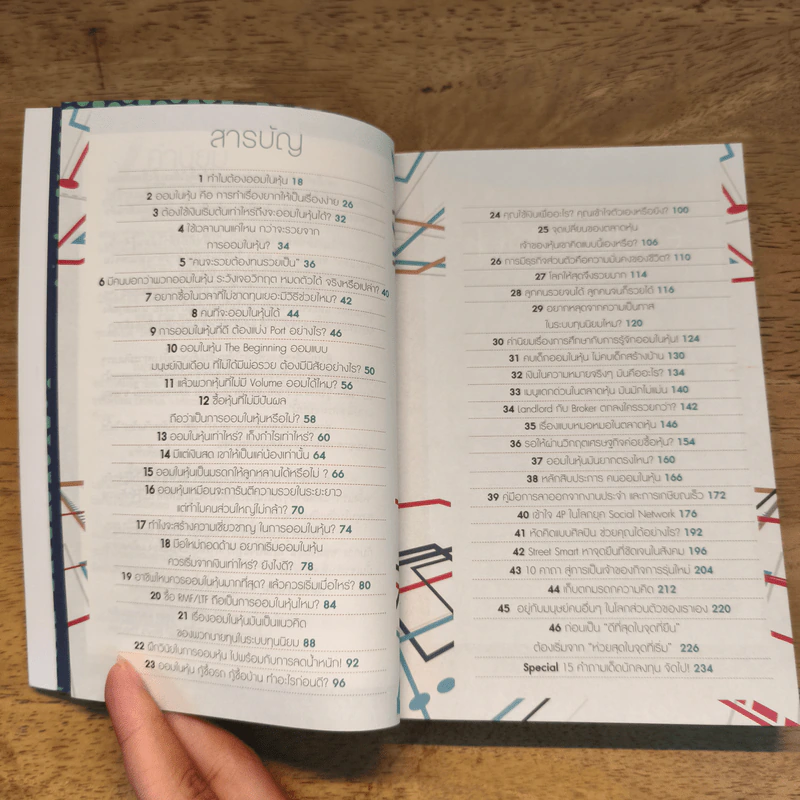 สารบัญ
1 ทำไมต้องออมในหุ้น 18
2 ออมในหุ้น คือ การทำเรื่องยากให้เป็นเรื่องง่าย 26
3 ต้องใช้เงินเริ่มต้นเท่าไหร่ถึงจะออมในหุ้นได้? 32
4 ใช้เวลานานแค่ไหน กว่าจะรวยจาก
การออมในหุ้น? 34
5 "คนจะรวยต้องทนรวยเป็น" 36
6 มีคนบอกว่าพวกออมในหุ้น ระวังเจอวิกฤต หมดตัวได้ จริงหรือเปล่า? 40
7 อยากซื้อในเวลาที่ไม่ขาดทุนเยอะมีวิธีช่วยไหม? 42
8 คนที่จะออมในหุ้นได้ 44
9 การออมในหุ้นที่ดี ต้องแบ่ง Port อย่างไร? 46
10 ออมในหุ้น The Beginning ออมแบบ
มนุษย์เงินเดือน ที่ไม่ได้มีพ่อรวย ต้องมีนิสัยอย่างไร? 50
11 แล้วพวกหุ้นที่ไม่มี Volume ออมได้ไหม? 56
12 ซื้อหุ้นที่ไม่มีปันผล
ถือว่าเป็นการออมในหุ้นหรือไม่? 58
13 ออมในหุ้นเท่าไหร่? เก็งกำไรเท่าไหร่? 60
14 มีแต่เงินสด เขาให้เป็นแค่น้องเท่านั้น 64
15 ออมในหุ้นเป็นมรดกให้ลูกหลานได้หรือไม่ ? 66
16 ออมหุ้นเหมือนจะการันตีความรวยในระยะยาว
แต่ทำไมคนส่วนใหญ่ไม่กล้า? 70
17 ทำไงจะสร้างความเชี่ยวชาญ ในการออมในหุ้น? 74
18 มือใหม่ถอดด้าม อยากเริ่มออมในหุ้น
ควรเริ่มจากเงินเท่าไหร่? ยังไงดี? 78
19 อาชีพไหนควรออมในหุ้นมากที่สุด? แล้วควรเริ่มเมื่อไหร่? 80
20 ซื้อ RMF/LTF ถือเป็นการออมในหุ้นไหม? 84
21 เรื่องออมในหุ้นมันเป็นแนวคิด
ของพวกนายทุนในระบบทุนนิยม 88
22 ฝึกวินัยในการออมหุ้น ไปพร้อมกับการลดน้ำหนัก! 92
23 ออมในหุ้น กู้ซื้อรถ กู้ซื้อบ้าน ทำอะไรก่อนดี? 96
24 คุณใช้เงินเพื่ออะไร? คุณเข้าใจตัวเองหรือยัง? 100
25 จุดเปลี่ยนของตลาดหุ้น
เจ้าของหุ้นเขาคิดแบบนี้เองหรือ? 106
26 การมีธุรกิจส่วนตัวคือความมั่นคงของชีวิต? 110
27 โลภให้สุดจึงรวยมาก 114
28 ลูกคนรวยจนได้ ลูกคนจนก็รวยได้ 116
29 อยากหลุดจากความเป็นทาส
ในระบบทุนนิยมไหม? 120
30 ค่านิยมเรื่องการศึกษากับการรู้จักออมในหุ้น! 124
31 คบเด็กออมในหุ้น ไม่คบเด็กสร้างบ้าน 130
32 เงินในความหมายจริงๆ มันคืออะไร? 134
33 เมนูแตกด่วนในตลาดหุ้น มันมักไม่แม่น 140
34 Landlord กับ Broker ตกลงใครรวยกว่า? 142
35 เรื่องแบบหมอหมอในตลาดหุ้น 146
36 รอให้ผ่านวิกฤตเศรษฐกิจค่อยซื้อหุ้น? 154
37 ออมในหุ้นมันยากตรงไหน? 160
38 หลักสิบประการ คนออมในหุ้น 166
39 คู่มือการลาออกจากงานประจำ และการเกษียณเร็ว 172
40 เข้าใจ 4P ในโลกยุค Social Network 176
41 หัดคิดแบบศิลปิน ช่วยคุณได้อย่างไร? 192
42 Street Smart หาจุดยืนที่ชัดเจนในสังคม 196
43 10 คาถา สู่การเป็นเจ้าของกิจการรุ่นใหม่ 204
44 เก็บตกมรดกความคิด 212
45 อยู่กับมนุษย์คนอื่นๆ ในโลกส่วนตัวของเราเอง 220
46 ก่อนเป็น "ดีที่สุดในจุดที่ยืน"
ต้องเริ่มจาก "ห่วยสุดในจุดที่เริ่ม" 226
Special 15 คำถามเด็ดนักลงทุน จัดไป! 234